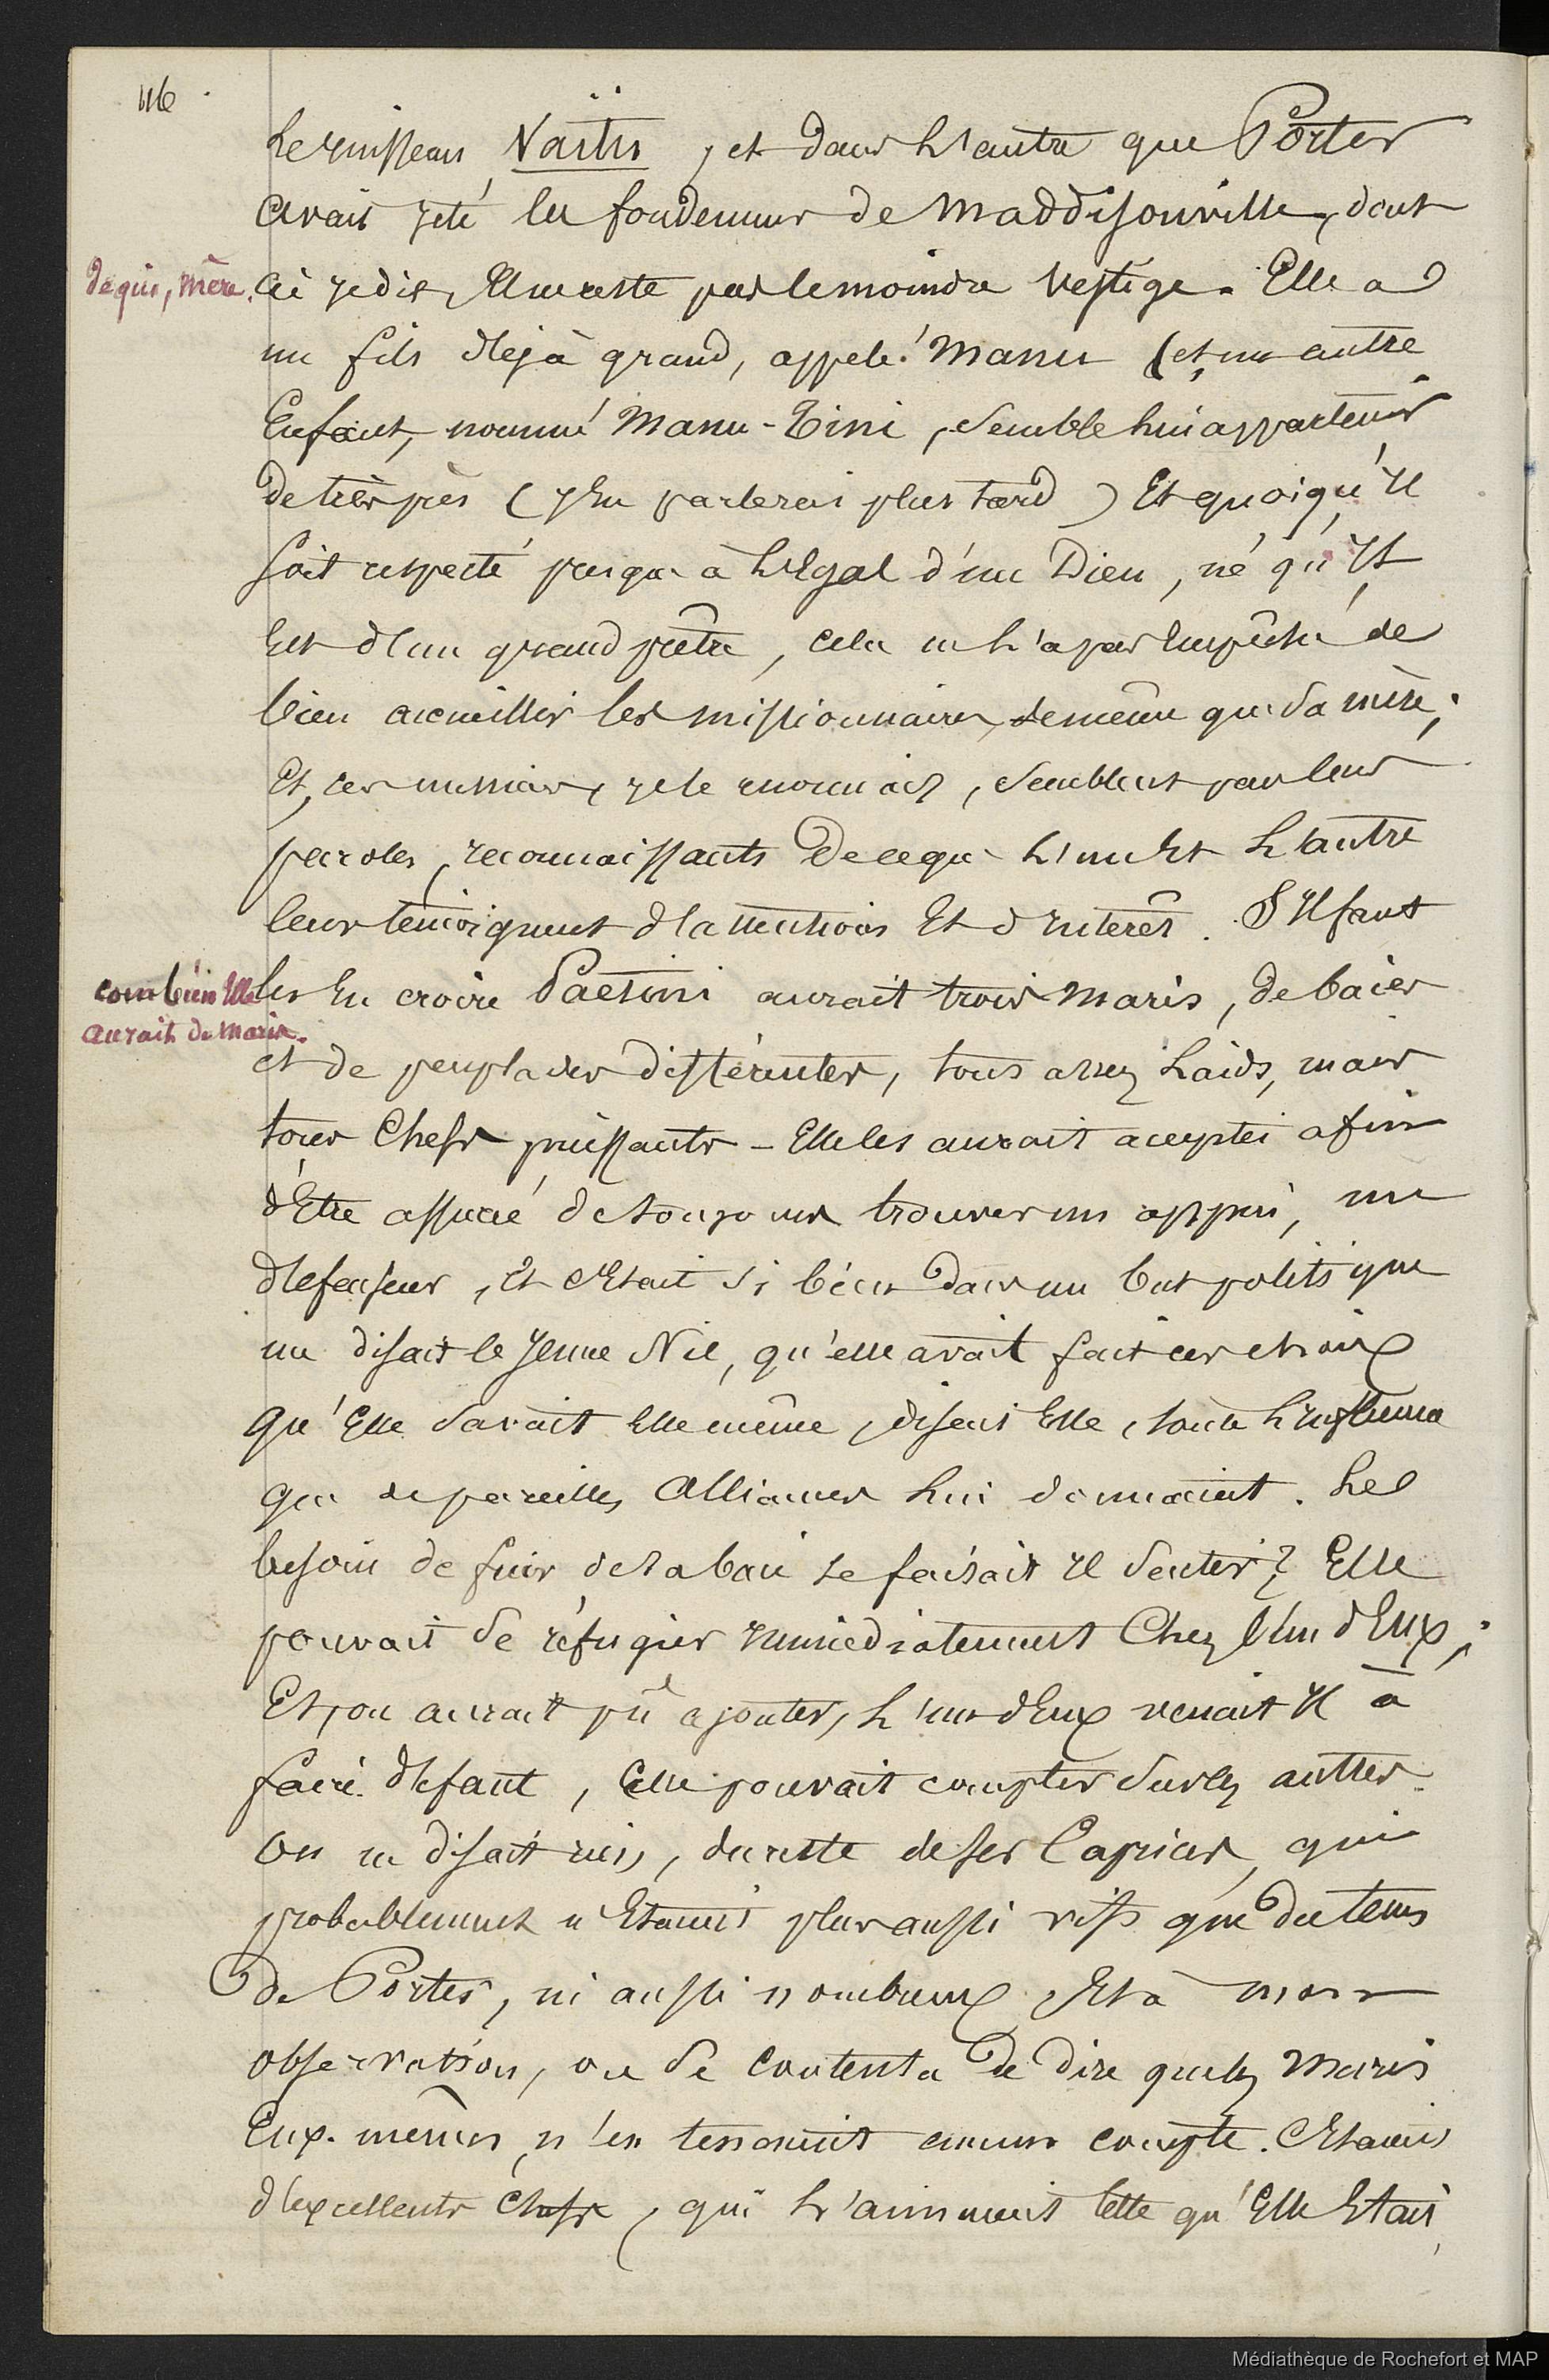 116
Le ruisseau Vaïtis, et dans l'autre que Porter
avait jeté les fondemens de Maddisonville, dont
de qui, mère.
ai je dit, Il ne reste pas le moindre Vestige. Elle a
un fils déjà grand, appelé Manu (et un autre
Enfant, nommé Manu-Tini, semble lui appartenir
de très près (J'En parlerai plus tard) Et quoiqu'Il
soit respecté presque à l'Egal d'un Dieu, né qu'Il
Est d'un grand prêtre, cela ne l'a pas Empêché de
bien accueillir les missionnaires, de même que sa mère;
Et, ces messieurs, je le reconnais, semblent par leurs
paroles, reconnaissants de ce que l'un Et l'autre
leur témoignent d'attentions Et d'Intérêt. S'Il faut
combien Elle
aurait de maris.
les En croire Paetini aurait trois maris, de baies
et de peuplades différentes, tous assez laids, mais
tous Chefs puissants - Elle les aurait acceptés afin
d'Etre assurée de toujours trouver un appui, un
défenseur, Et c'Etait si bien dans un but politique
me disait le Jeune Nil, qu'elle avait fait ces choix
qu'Elle savait Elle même, disait Elle, toute l'Influence
que de pareilles Alliances lui donnaient. Le
besoin de fuir de sa baie se faisait Il sentir? Elle
pouvait se réfugier Immédiatement Chez l'un d'Eux;
Et, on aurait pû ajouter, l'un d'Eux venait Il à
faire défaut, Elle pouvait compter sur les autres.
On ne disait rien, du reste de ses Caprices, qui
probablement n'Etaient plus aussi vifs que du tems
de Porter, ni aussi nombreux, Et à mon
observation, on se contenta de dire que les Maris
Eux-mêmes, n'en tenaient aucun compte. C'Etaient
d'Excellents Chefs, qui l'aimaient telle qu'Elle Etait,
Médiathèque de Rochefort et MAP